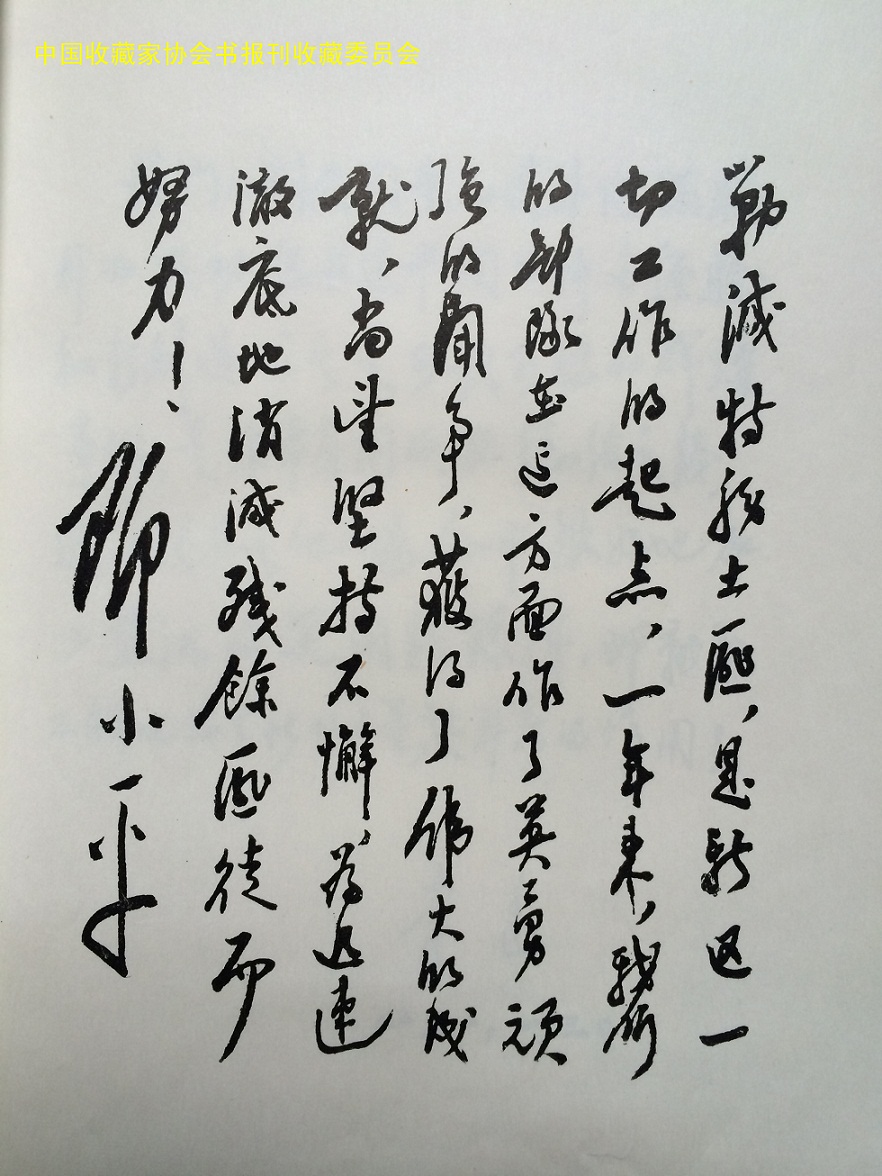 中国收藏家协会书报刊收藏委员会
勦滅特務土匪，是新区一
切工作的起点，一年来，
的部队在这方面作了英勇顽
强的鬥争，獲得了偉大的成
就，尚望坚持不懈，為迅速
澈底地消滅残餘匪徒而
努力！
邓小平